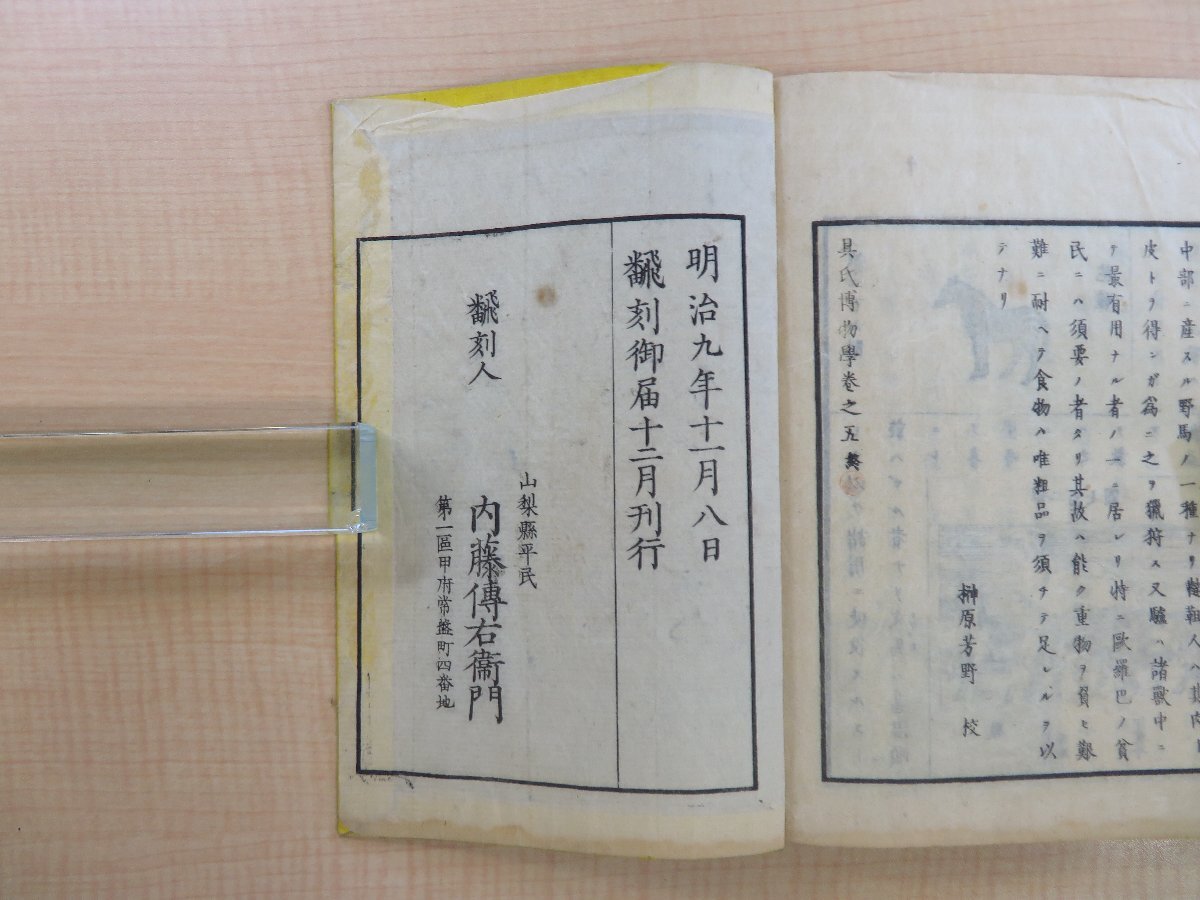 中部ニ産スル野馬ノ一種ナリ韃靼人ハ其肉ト
皮トヲ得ンガ爲ニ之ヲ獵狩ス又驢ハ諸獸中ニ
テ最有用ナル者ノ一ニ居レリ特ニ歐羅巴ノ貧
民ニハ須要ノ者タリ其故ハ能ク重物ヲ負ヒ艱
難ニ耐ヘテ食物ハ唯粗品ヲ須チテ足レルヲ以
テナリ
榊原芳野 校
具氏博物學卷之五終
明治九年十一月八日
飜刻御届十二月刊行
飜刻人
山梨縣平民
内藤傳右衞門
第一區甲府常盤町四番地